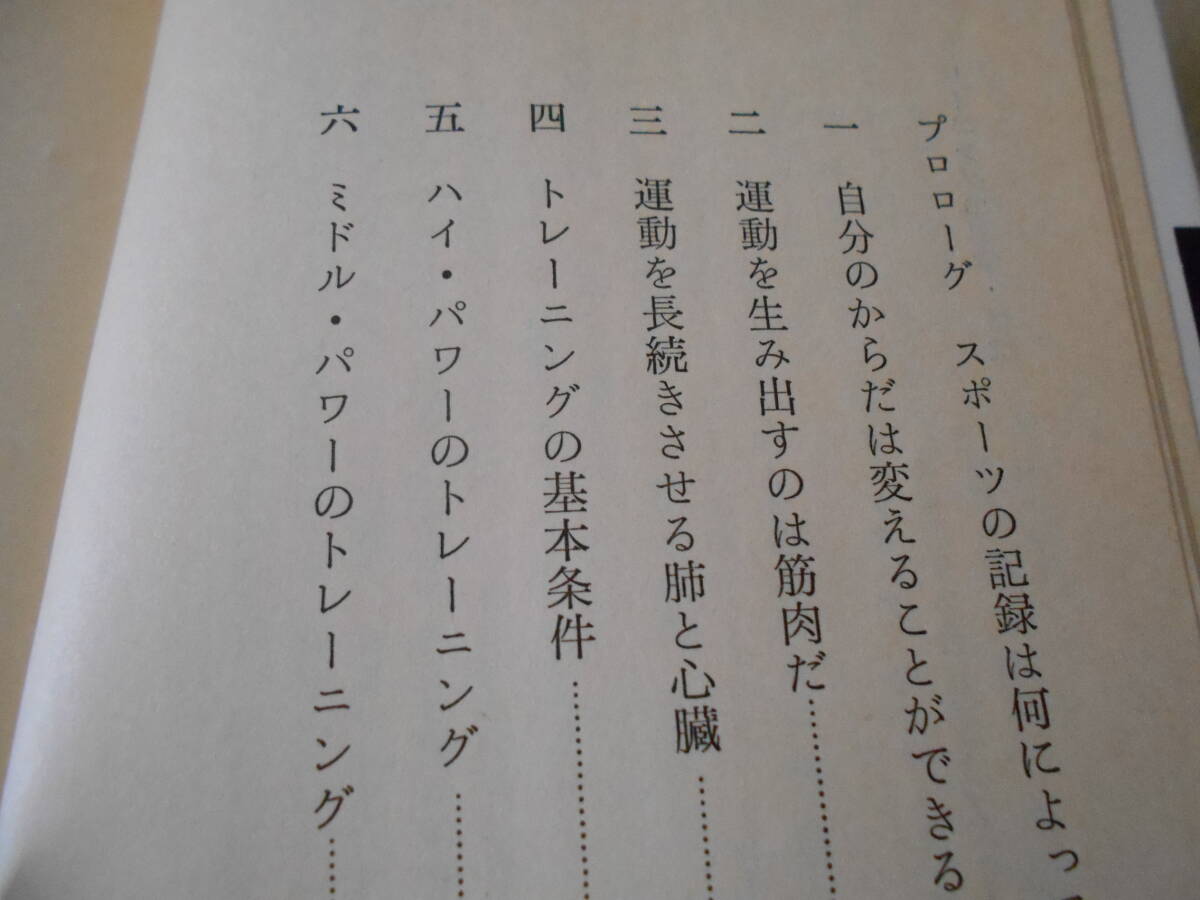 プロローグ スポーツの記録は何によっ
一 自分のからだは変えることができる
二 運動を生み出すのは筋肉だ…………
三 運動を長続きさせる肺と心臓…………
四 トレーニングの基本条件…………
五 ハイ・パワーのトレーニング…………
六 ミドル・パワーのトレーニング……